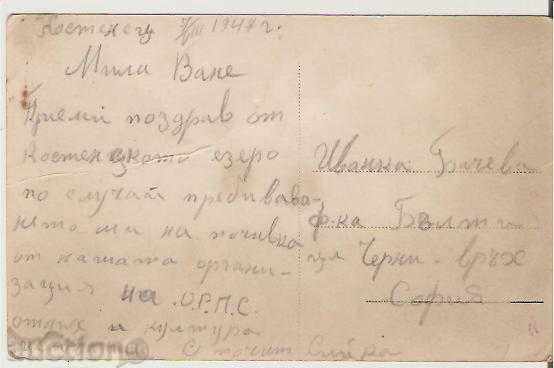 Костенец 194 г.
Мила Ване
Приеми поздрав от
Костенското езеро
по случай пребивава-
нето ми на почивка
от нашата органи-
зация на О.Р.П.С.
отдих и култура
С почит
Иванка Бачева
ф-ка
ул Черни - връх
София